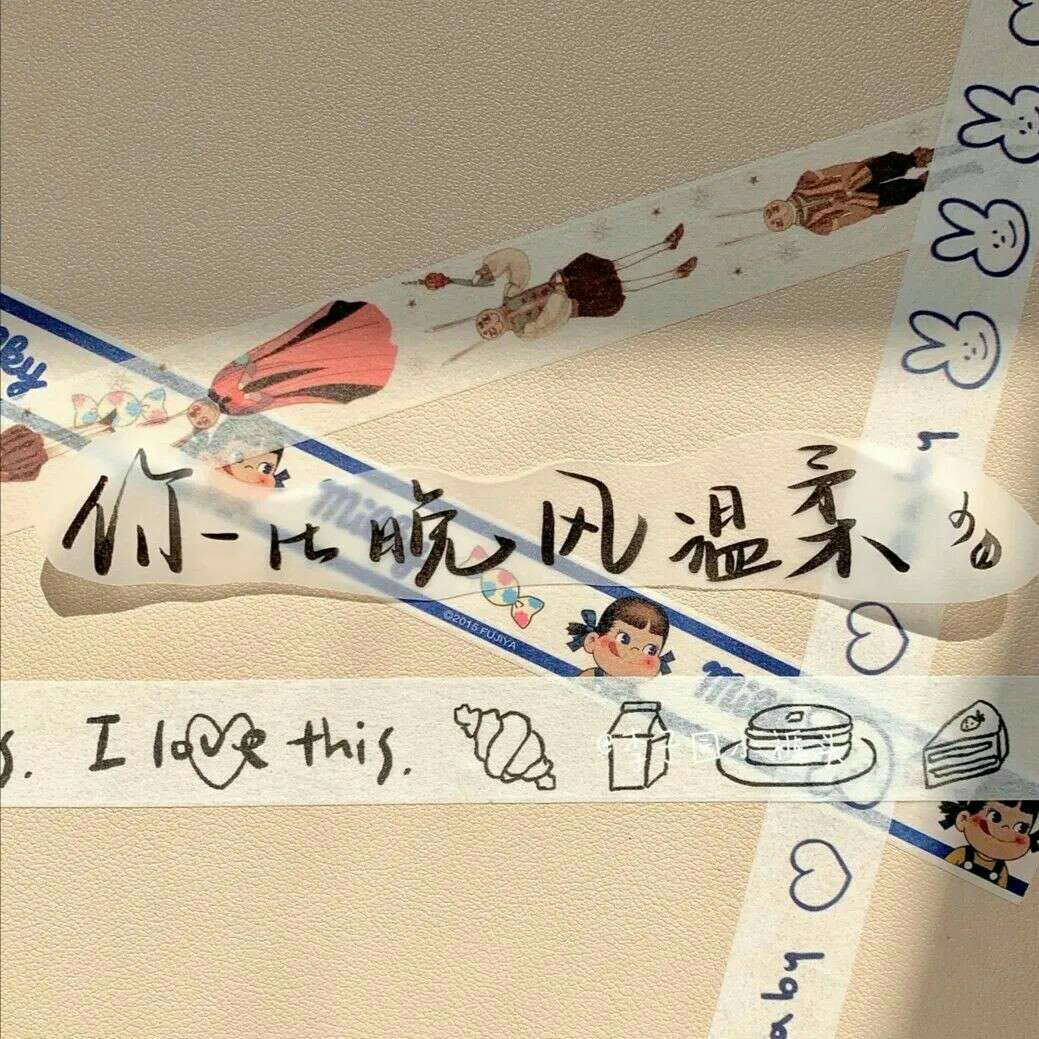 你一比晚风温柔
Milky
©2015 FUJIYA
Milky
s. I love this.
aby